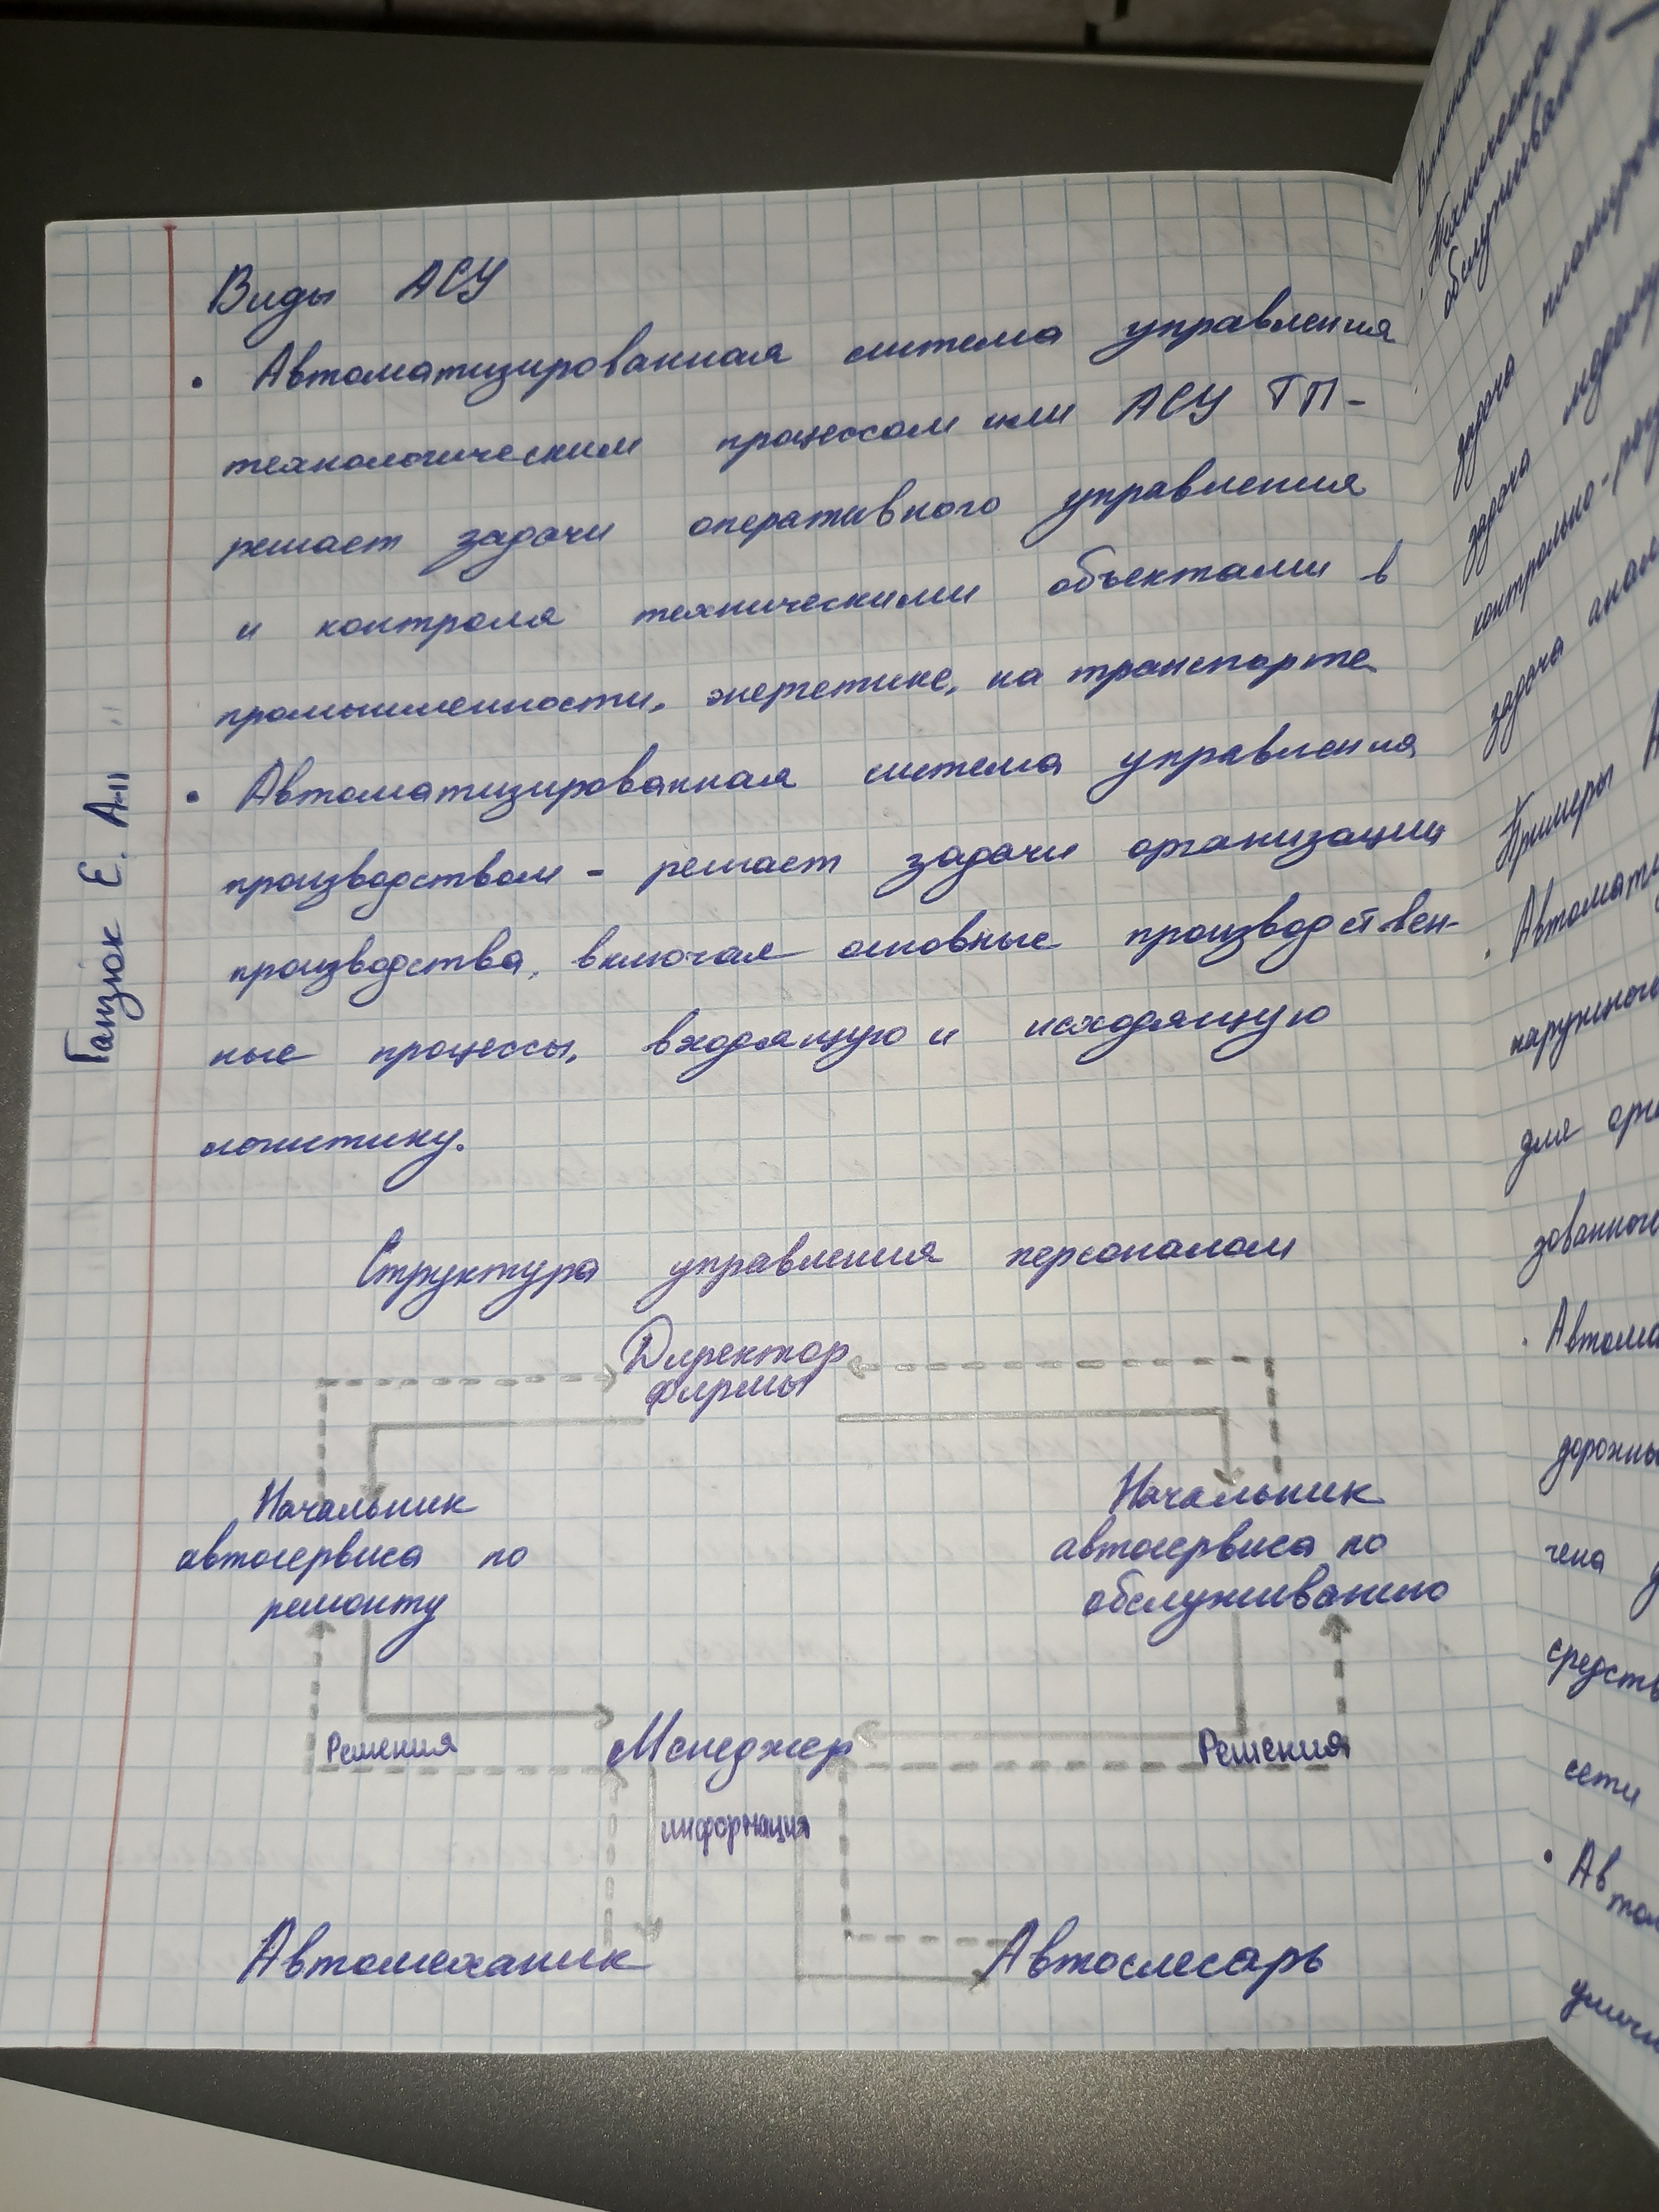 Виды АСУ
• Автоматизированная система управления
технологическим процессом или АСУ ТП-
решает задачи оперативного управления
и контроля техническими объектами в
промышленности, энергетике, на транспорте
• Автоматизированная система управления
производством - решает задачи организации
производства, включая основные производствен-
ные процессы, входящую и исходящую
логистику.
Гацюк Е. А-11
Структура управления персоналом
Директор
фирмы
Начальник
автосервиса по
ремонту
Начальник
автосервиса по
обслуживанию
Решения
Менеджер
Решения
информация
Автомеханик
Автослесарь
Техническое
обслуживание
задача
задача
контрольно-
задача
Примеры
для
сети